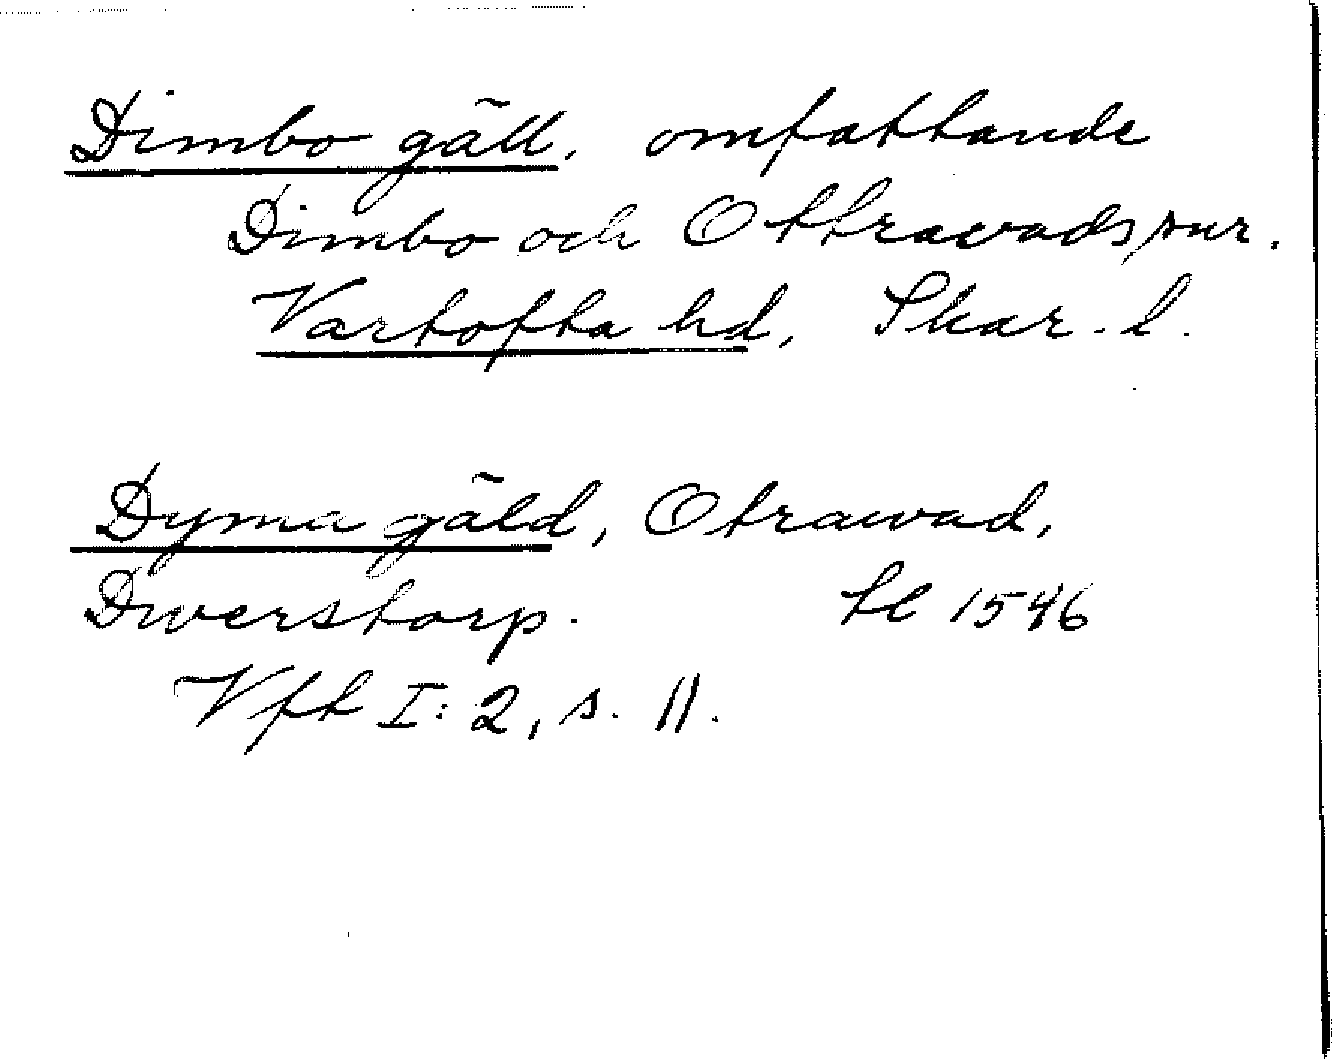 Dimbo gäll, omfattande
Dimbo och Ottravads snr.
Vartofta hd, Skar. l.
Dyma gäld, Otrawad,
Dwerstorp. tl 1546
Vft I: 2, s. 11.